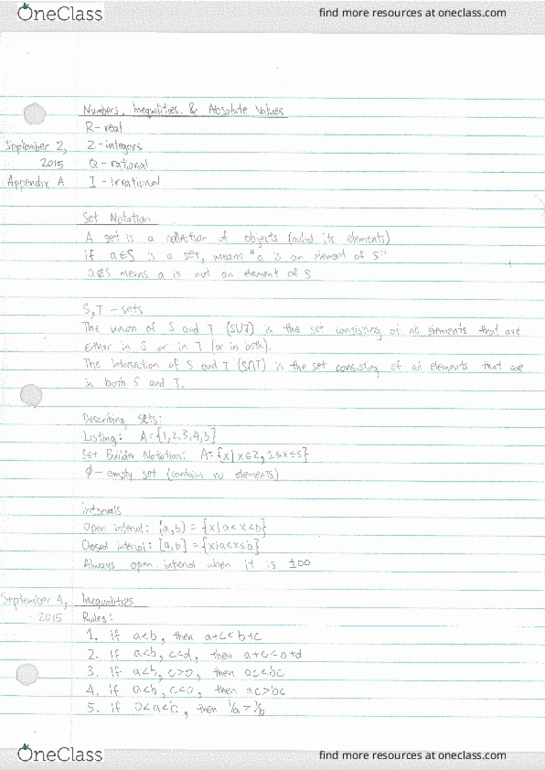 OneClass find more resources at oneclass.com
Numbers, Inequalities, & Absolute Values
R - real
September 2, Z - integers
2015 Q - rational
Appendix A I - irrational
Set Notation
A set is a collection of objects (called its elements)
if a∈S is a set, means "a is an element of S"
a∉S means a is not an element of S
S,T - sets
The union of S and T (SUT) is the set consisting of all elements that are
either in S or in T (or in both).
The intersection of S and T (S∩T) is the set consisting of all elements that are
in both S and T.
Describing sets:
Listing: A={1,2,3,4,5}
Set Builder Notation: A={x|x∈Z, 1≤x≤5}
∅ - empty set (contains no elements)
intervals
Open interval: (a,b) = {x|a<x<b}
Closed interval: [a,b] = {x|a≤x≤b}
Always open interval when it is ±∞
September 4, Inequalities
2015 Rules:
1. if a<b, then a+c<b+c
2. if a<b, c<d, then a+c<b+d
3. if a<b, c>0, then ac<bc
4. if a<b, c<0, then ac>bc
5. if 0<a<b, then 1/a > 1/b
OneClass find more resources at oneclass.com